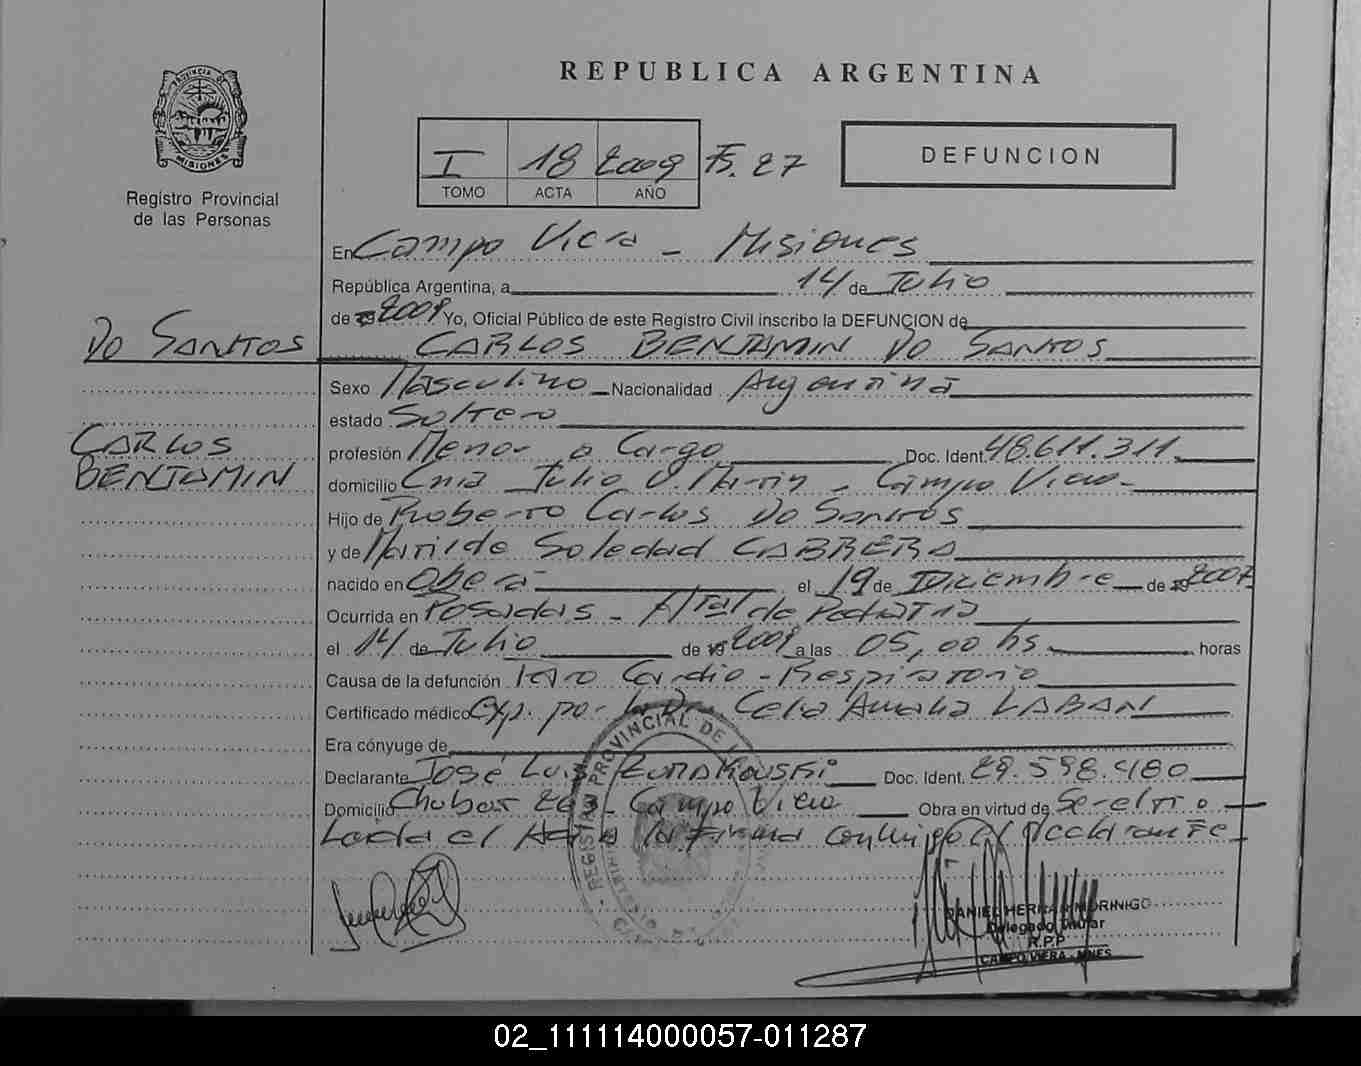 REPUBLICA ARGENTINA
PROVINCIA DE MISIONES
Registro Provincial
de las Personas
I 18 2009 Fs. 27
TOMO ACTA AÑO
DEFUNCION
En Campo Viera - Misiones
República Argentina, a 14 de Julio
de 2009 Yo, Oficial Público de este Registro Civil inscribo la DEFUNCION de
DO SANTOS CARLOS BENJAMIN DO SANTOS
Sexo Masculino Nacionalidad Argentina
estado Soltero
CARLOS
BENJAMIN
profesión Menor a Cargo Doc. Ident. 48.611.311.
domicilio Cnia Julio U. Martin - Campo Viera -
Hijo de Roberto Carlos Do Santos
y de Matilde Soledad CABRERA
nacido en Oberá el 19 de Diciembre de 2007
Ocurrida en Posadas - Htal de Pediatria
el 14 de Julio de 2009 a las 05,00 hs. horas
Causa de la defunción Paro Cardio - Respiratorio
Certificado médico Exp. por la Dra Celia Amalia LABAN
Era cónyuge de
Declarante José Luis ZURAKOUSKI Doc. Ident. 29.598.480
Domicilio Chubut - Campo Viera Obra en virtud de Ser el tio
Leida el Acta la Firma conmigo el Declarante
REGISTRO PROVINCIAL DE
DANIEL HERNAN MORINIGO
Delegado Titular
R.P.P
CAMPO VIERA - MNES
02_111114000057-011287